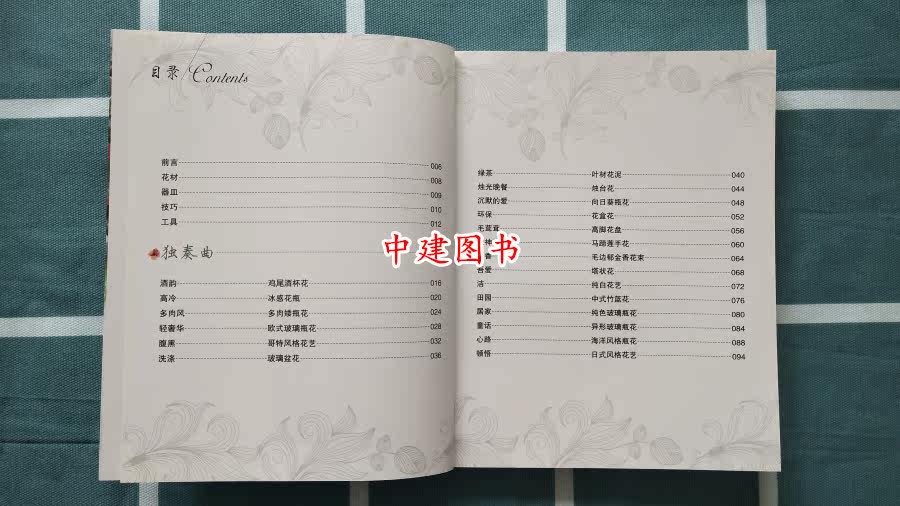 目录 Contents
前言 006
花材 008
器皿 009
技巧 010
工具 012
独奏曲
酒韵 鸡尾酒杯花 016
高冷 冰感花瓶 020
多肉风 多肉矮瓶花 024
轻奢华 欧式玻璃瓶花 028
腹黑 哥特风格花艺 032
洗涤 玻璃盆花 036
绿茶 叶材花泥 040
烛光晚餐 烛台花 044
沉默的爱 向日葵瓶花 048
环保 花盒花 052
毛茸茸 高脚花盘 056
神 马蹄莲手花 060
香 毛边郁金香花束 064
吾爱 塔状花 068
洁 纯白花艺 072
田园 中式竹蓝花 076
居家 纯色玻璃瓶花 080
童话 异形玻璃瓶花 084
心路 海洋风格瓶花 088
顿悟 日式风格花艺 094
中建图书